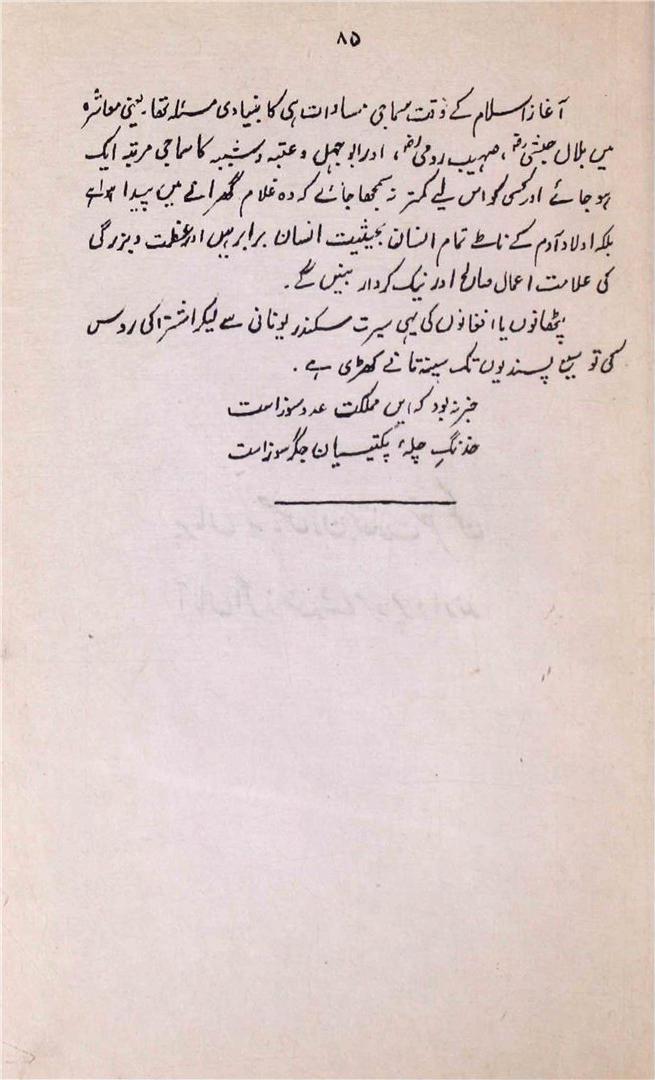 ۸۵
آغاز اسلام کے وقت سماجی مساوات ہی کا بنیادی مسئلہ تھا۔ یعنی معاشرہ
میں بلال حبشیؓ، صہیب رومیؓ، اور ابوجہل و عتبہ و شیبہ کا سماجی مرتبہ ایک
ہو جائے اور کسی کو اس لیے کمتر نہ سمجھا جائے کہ وہ غلام گھرانے میں پیدا ہوا ہے
بلکہ اولاد آدم کے ناطے تمام انسان بحیثیت انسان برابر ہیں اور عظمت و بزرگی
کی علامت اعمال صالح اور نیک کردار بنیں گے۔
پٹھانوں یا افغانوں کی یہی سیرت سکندر یونانی سے لیکر اشتراکی روس
کی توسیع پسندیوں تک سینہ تانے کھڑی ہے۔
خبر نہ بود کہ ایں مملکت عدو سوز است
خدنگِ چلۂ پکتیسیان جگر سوز است